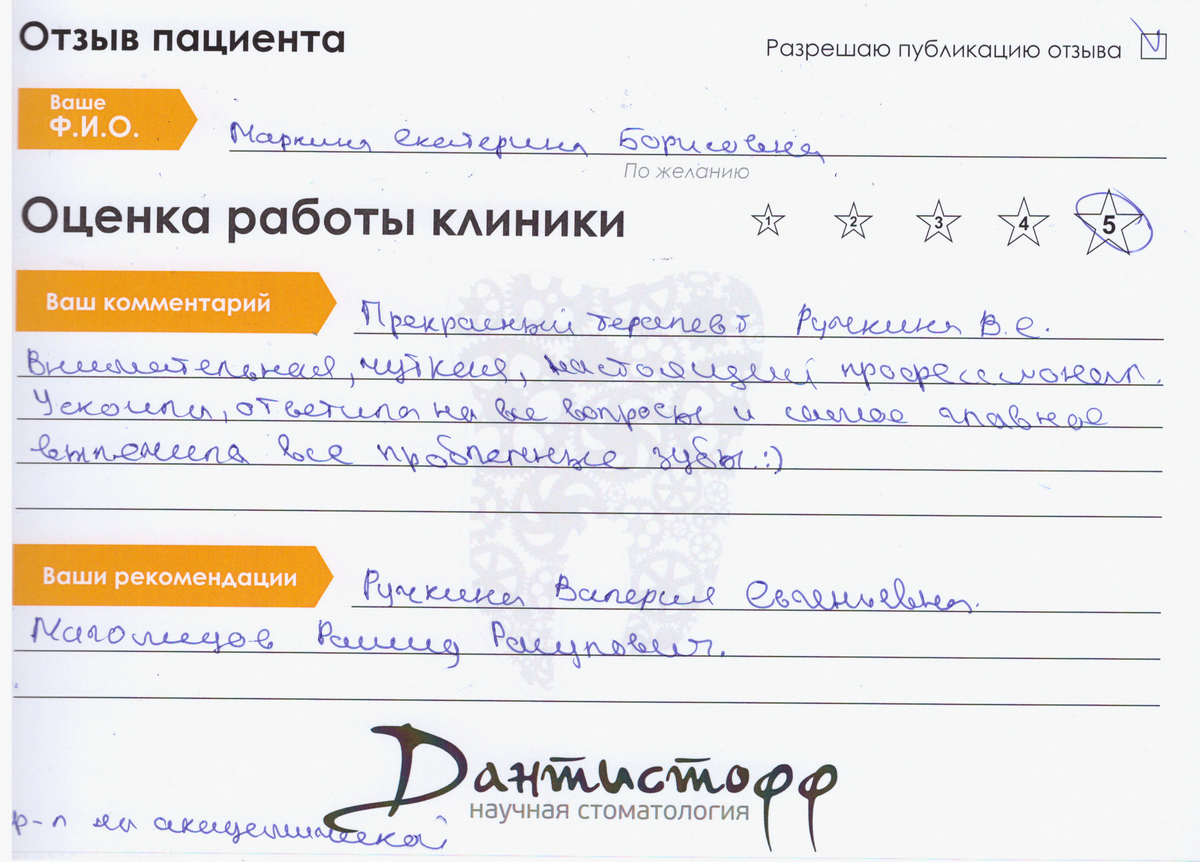 Отзыв пациента
Разрешаю публикацию отзыва
Ваше
Ф.И.О.
Маркина Екатерина Борисовна
По желанию
Оценка работы клиники
1 2 3 4 5
Ваш комментарий
Прекрасный терапевт Ручкина В.Е.
Внимательная, чуткая, настоящий профессионал.
Успокоила, ответила на все вопросы и самое главное
вылечила все проблемные зубы :)
Ваши рекомендации
Ручкина Валерия Евгеньевна.
Магомедов Рашид
Дантистофф
научная стоматология
академической